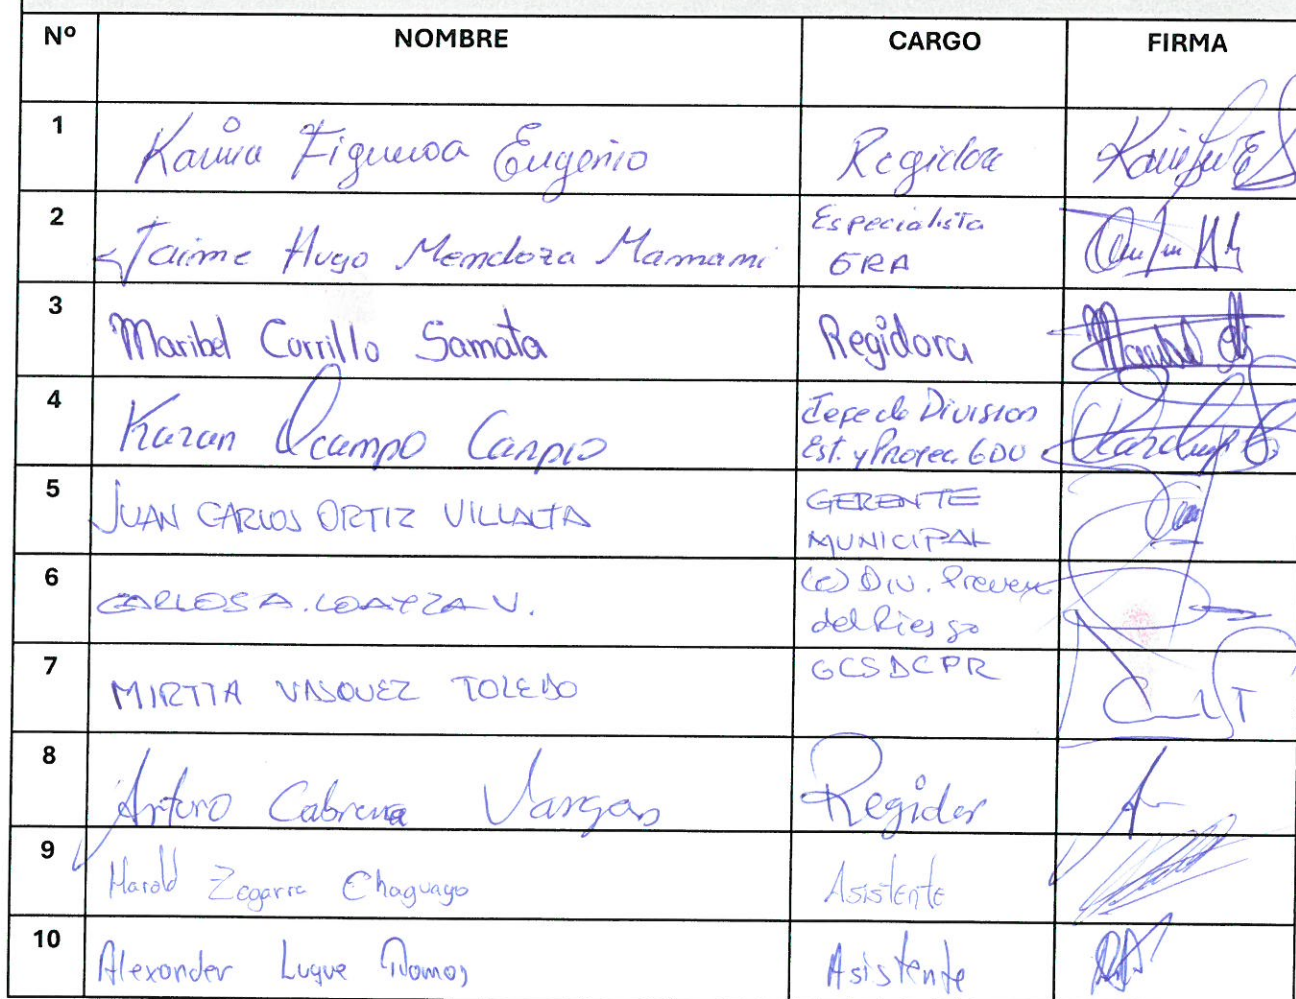 Nº NOMBRE CARGO FIRMA
1 Karina Figueroa Eugenio Regidora
2 Jaime Hugo Mendoza Mamani Especialista
GRA
3 Maribel Carrillo Samata Regidora
4 Karan Ocampo Carpio Jefe de Division
Est. y Proyec. GDU
5 JUAN CARLOS ORTIZ VILLALTA GERENTE
MUNICIPAL
6 CARLOS A. LOAYZA V. (e) Div. Prevenc
del Riesgo
7 MIRTTA VASQUEZ TOLEDO GCSDCPR
8 Arturo Cabrera Vargas Regidor
9 Harold Zegarra Chaguayo Asistente
10 Alexander Luque Ramos Asistente